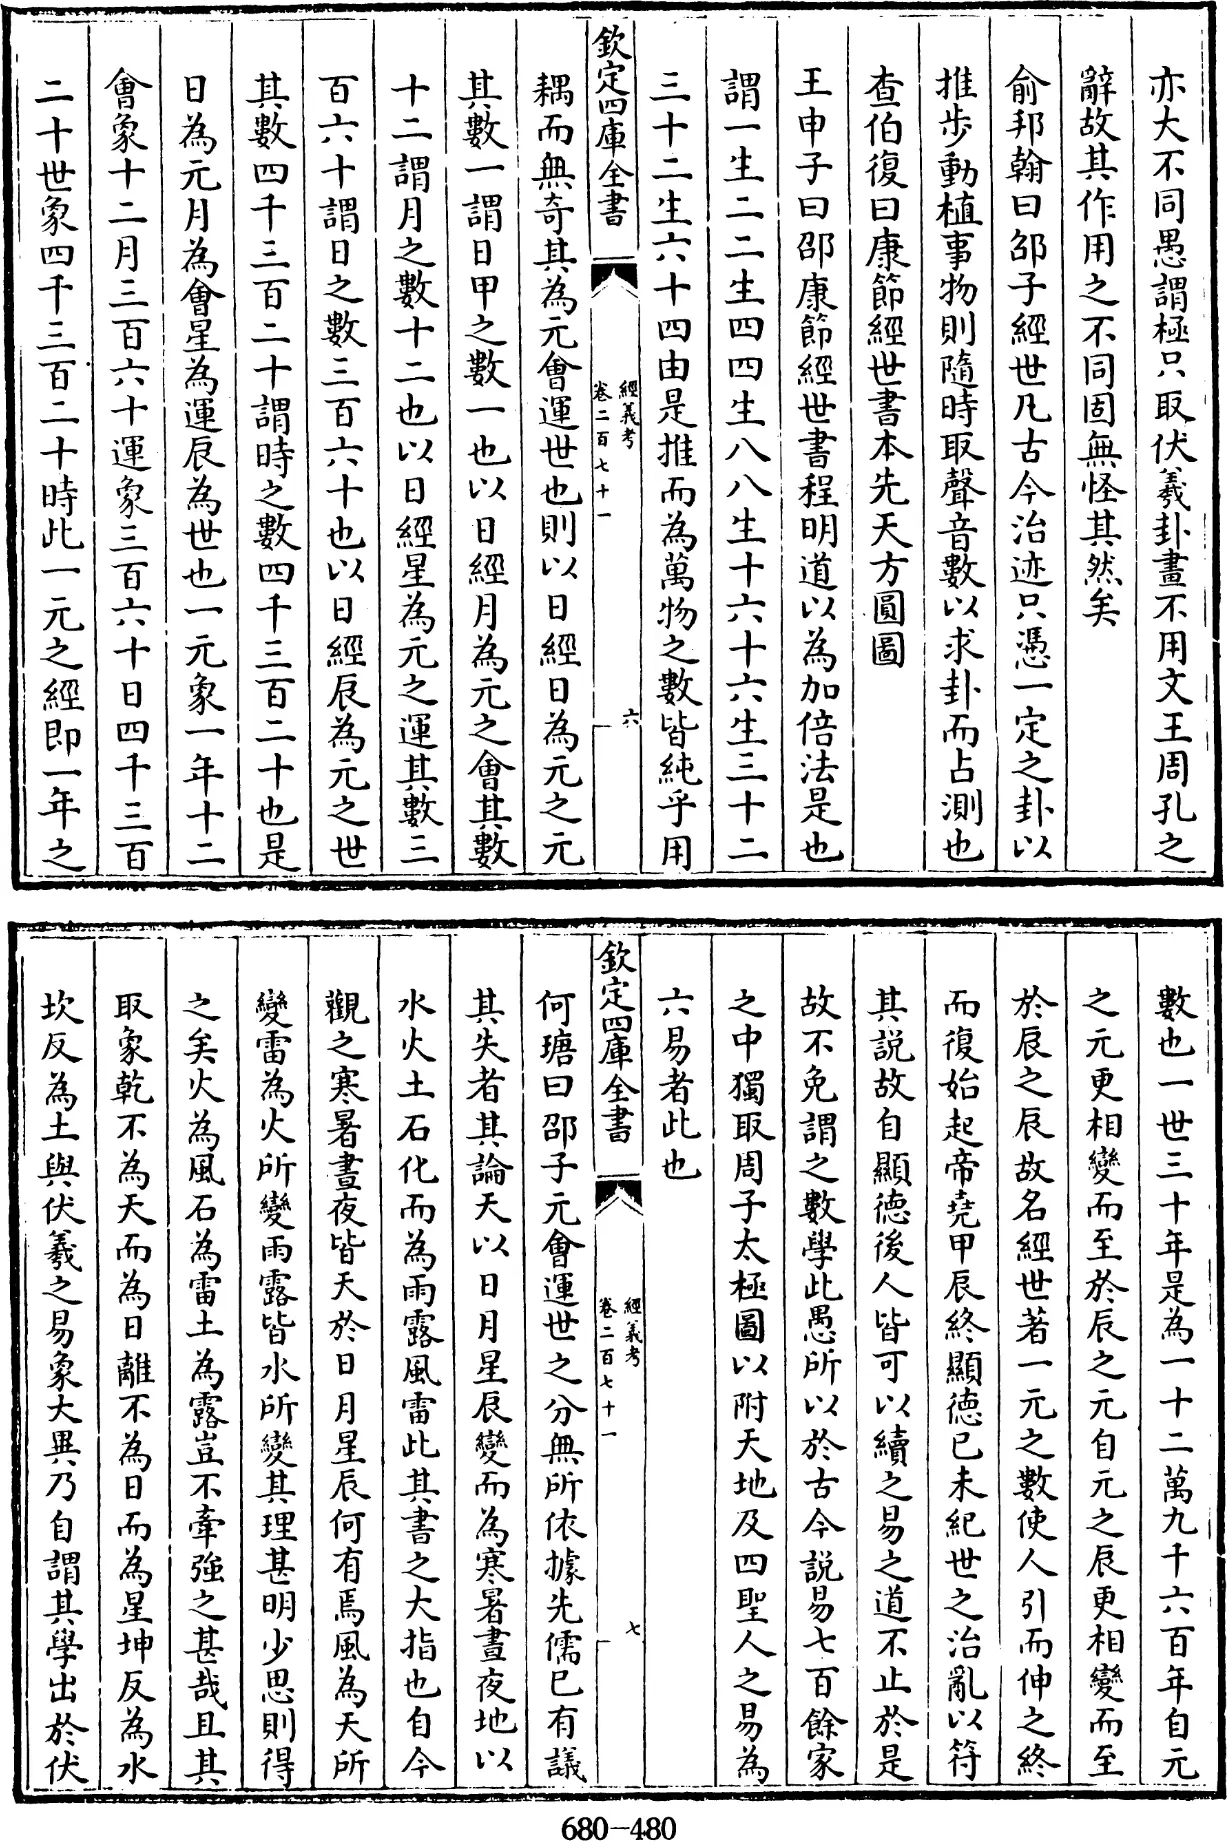 亦大不同愚謂極只取伏羲卦畫不用文王周孔之
辭故其作用之不同固無怪其然矣
俞邦翰曰邵子經世凡古今治迹只憑一定之卦以
推步動植事物則隨時取聲音數以求卦而占測也
查伯復曰康節經世書本先天方圓圖
王申子曰邵康節經世書程明道以為加倍法是也
謂一生二二生四四生八八生十六十六生三十二
三十二生六十四由是推而為萬物之數皆純乎用
欽定四庫全書
經義考
卷二百七十一
六
耦而無奇其為元會運世也則以日經日為元之元
其數一謂日甲之數一也以日經月為元之會其數
十二謂月之數十二也以日經星為元之運其數三
百六十謂日之數三百六十也以日經辰為元之世
其數四千三百二十謂時之數四千三百二十也是
日為元月為會星為運辰為世也一元象一年十二
會象十二月三百六十運象三百六十日四千三百
二十世象四千三百二十時此一元之經即一年之
數也一世三十年是為一十二萬九千六百年自元
之元更相變而至於辰之元自元之辰更相變而至
於辰之辰故名經世著一元之數使人引而伸之終
而復始起帝堯甲辰終顯德已未紀世之治亂以符
其説故自顯德後人皆可以續之易之道不止於是
故不免謂之數學此愚所以於古今説易七百餘家
之中獨取周子太極圖以附天地及四聖人之易為
六易者此也
欽定四庫全書
經義考
卷二百七十一
七
何瑭曰邵子元會運世之分無所依據先儒已有議
其失者其論天以日月星辰變而為寒暑晝夜地以
水火土石化而為雨露風雷此其書之大指也自今
觀之寒暑晝夜皆天於日月星辰何有焉風為天所
變雷為火所變雨露皆水所變其理甚明少思則得
之矣火為風石為雷土為露豈不牽強之甚哉且其
取象乾不為天而為日離不為日而為星坤反為水
坎反為土與伏羲之易象大異乃自謂其學出於伏
680-480